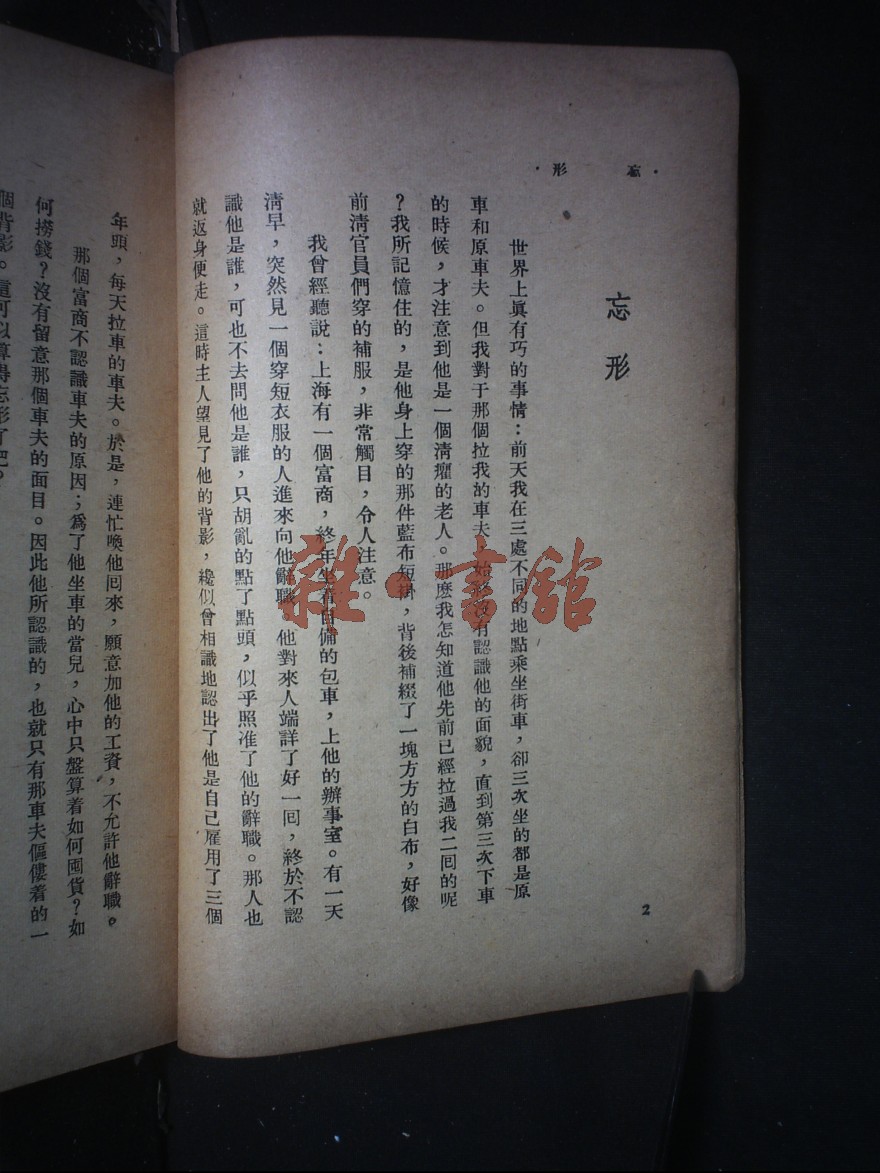 ·忘形·
忘形
世界上眞有巧的事情：前天我在三處不同的地點乘坐街車，卻三次坐的都是原
車和原車夫。但我對于那個拉我的車夫，始終沒有認識他的面貌，直到第三次下車
的時候，才注意到他是一個淸癯的老人。那麽我怎知道他先前已經拉過我二囘的呢
？我所記憶住的，是他身上穿的那件藍布短褂，背後補綴了一塊方方的白布，好像
前淸官員們穿的補服，非常觸目，令人注意。
我曾經聽說：上海有一個富商，終年坐着自備的包車，上他的辦事室。有一天
淸早，突然見一個穿短衣服的人進來向他辭職，他對來人端詳了好一囘，終於不認
識他是誰，可也不去問他是誰，只胡亂的點了點頭，似乎照准了他的辭職。那人也
就返身便走。這時主人望見了他的背影，纔似曾相識地認出了他是自己雇用了三個
年頭，每天拉車的車夫。於是，連忙喚他囘來，願意加他的工資，不允許他辭職。
那個富商不認識車夫的原因；爲了他坐車的當兒，心中只盤算着如何囤貨？如
何撈錢？沒有留意那個車夫的面目。因此他所認識的，也就只有那車夫傴僂着的一
個背影。還可以算得忘形了吧。
2
雜·書館